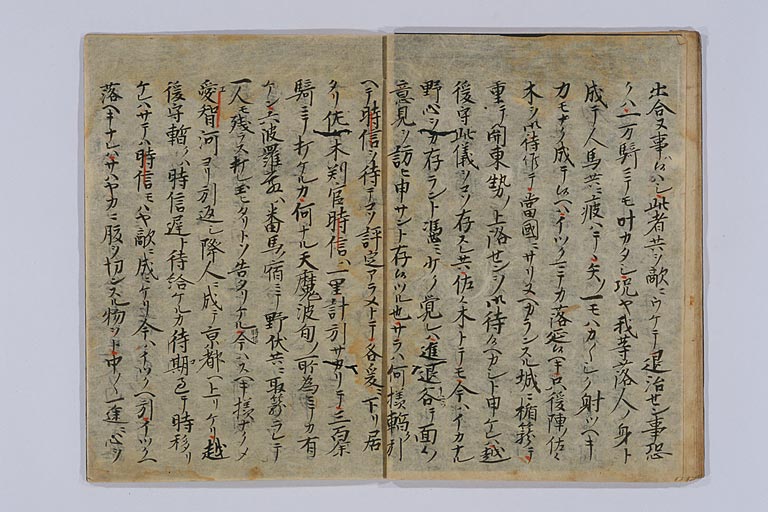 出合又事ハシ此者共ヲ敵ニウケテ退治セン事恐
クハ二万騎ニテモ叶カタシ況ヤ我等落人ノ身ト
成テ人馬共ニ疲ハテ矢一モハカ〱シク射ツヘキ
カモナク成テ候ヘハイツクマテカ落延候ヘキ只後陣佐々
木ヲ御待候テ當國ニサリヌヘカランスル城ニ楯籠テ
重テ関東勢ノ上洛センヲ御待候ヘカシト申ケレハ越
後守此儀ヲコソ存スレ共佐々木トテモ今ハイカナル
野心ヲカ存ラント憑ミ少ク覚レハ進退谷テ面々
意見ヲ訪ニ申サント存候ツル也サラハ何様暫引
ヘテ時信ヲ待テコソ評定アラメトテ各爰下リ居
タリ佐々木判官時信ハ一里計引サカリテ三百余
騎ニテ打ケルカ何ナル天魔波旬ノ所為ニテカ有
ケン六波羅殿ハ番馬宿ニテ野伏共ニ取籠ラレテ
一人モ残ラス打レ玉ヒタリトソ告タリケル今ハスヘキ様ナクメ
愛智河ヨリ引返シ降人ニ成テ京都ヘ上リケリ越
後守暫クハ時信遅ト待給ケルカ待期過テ時移リ
ケレハサテハ時信モハヤ敵ニ成ニケリ今ハイツクヘ引イツクヘ
落ヘキナレハサハヤカニ腹ヲ切ンスル物ヲト申一途ニ心ヲ